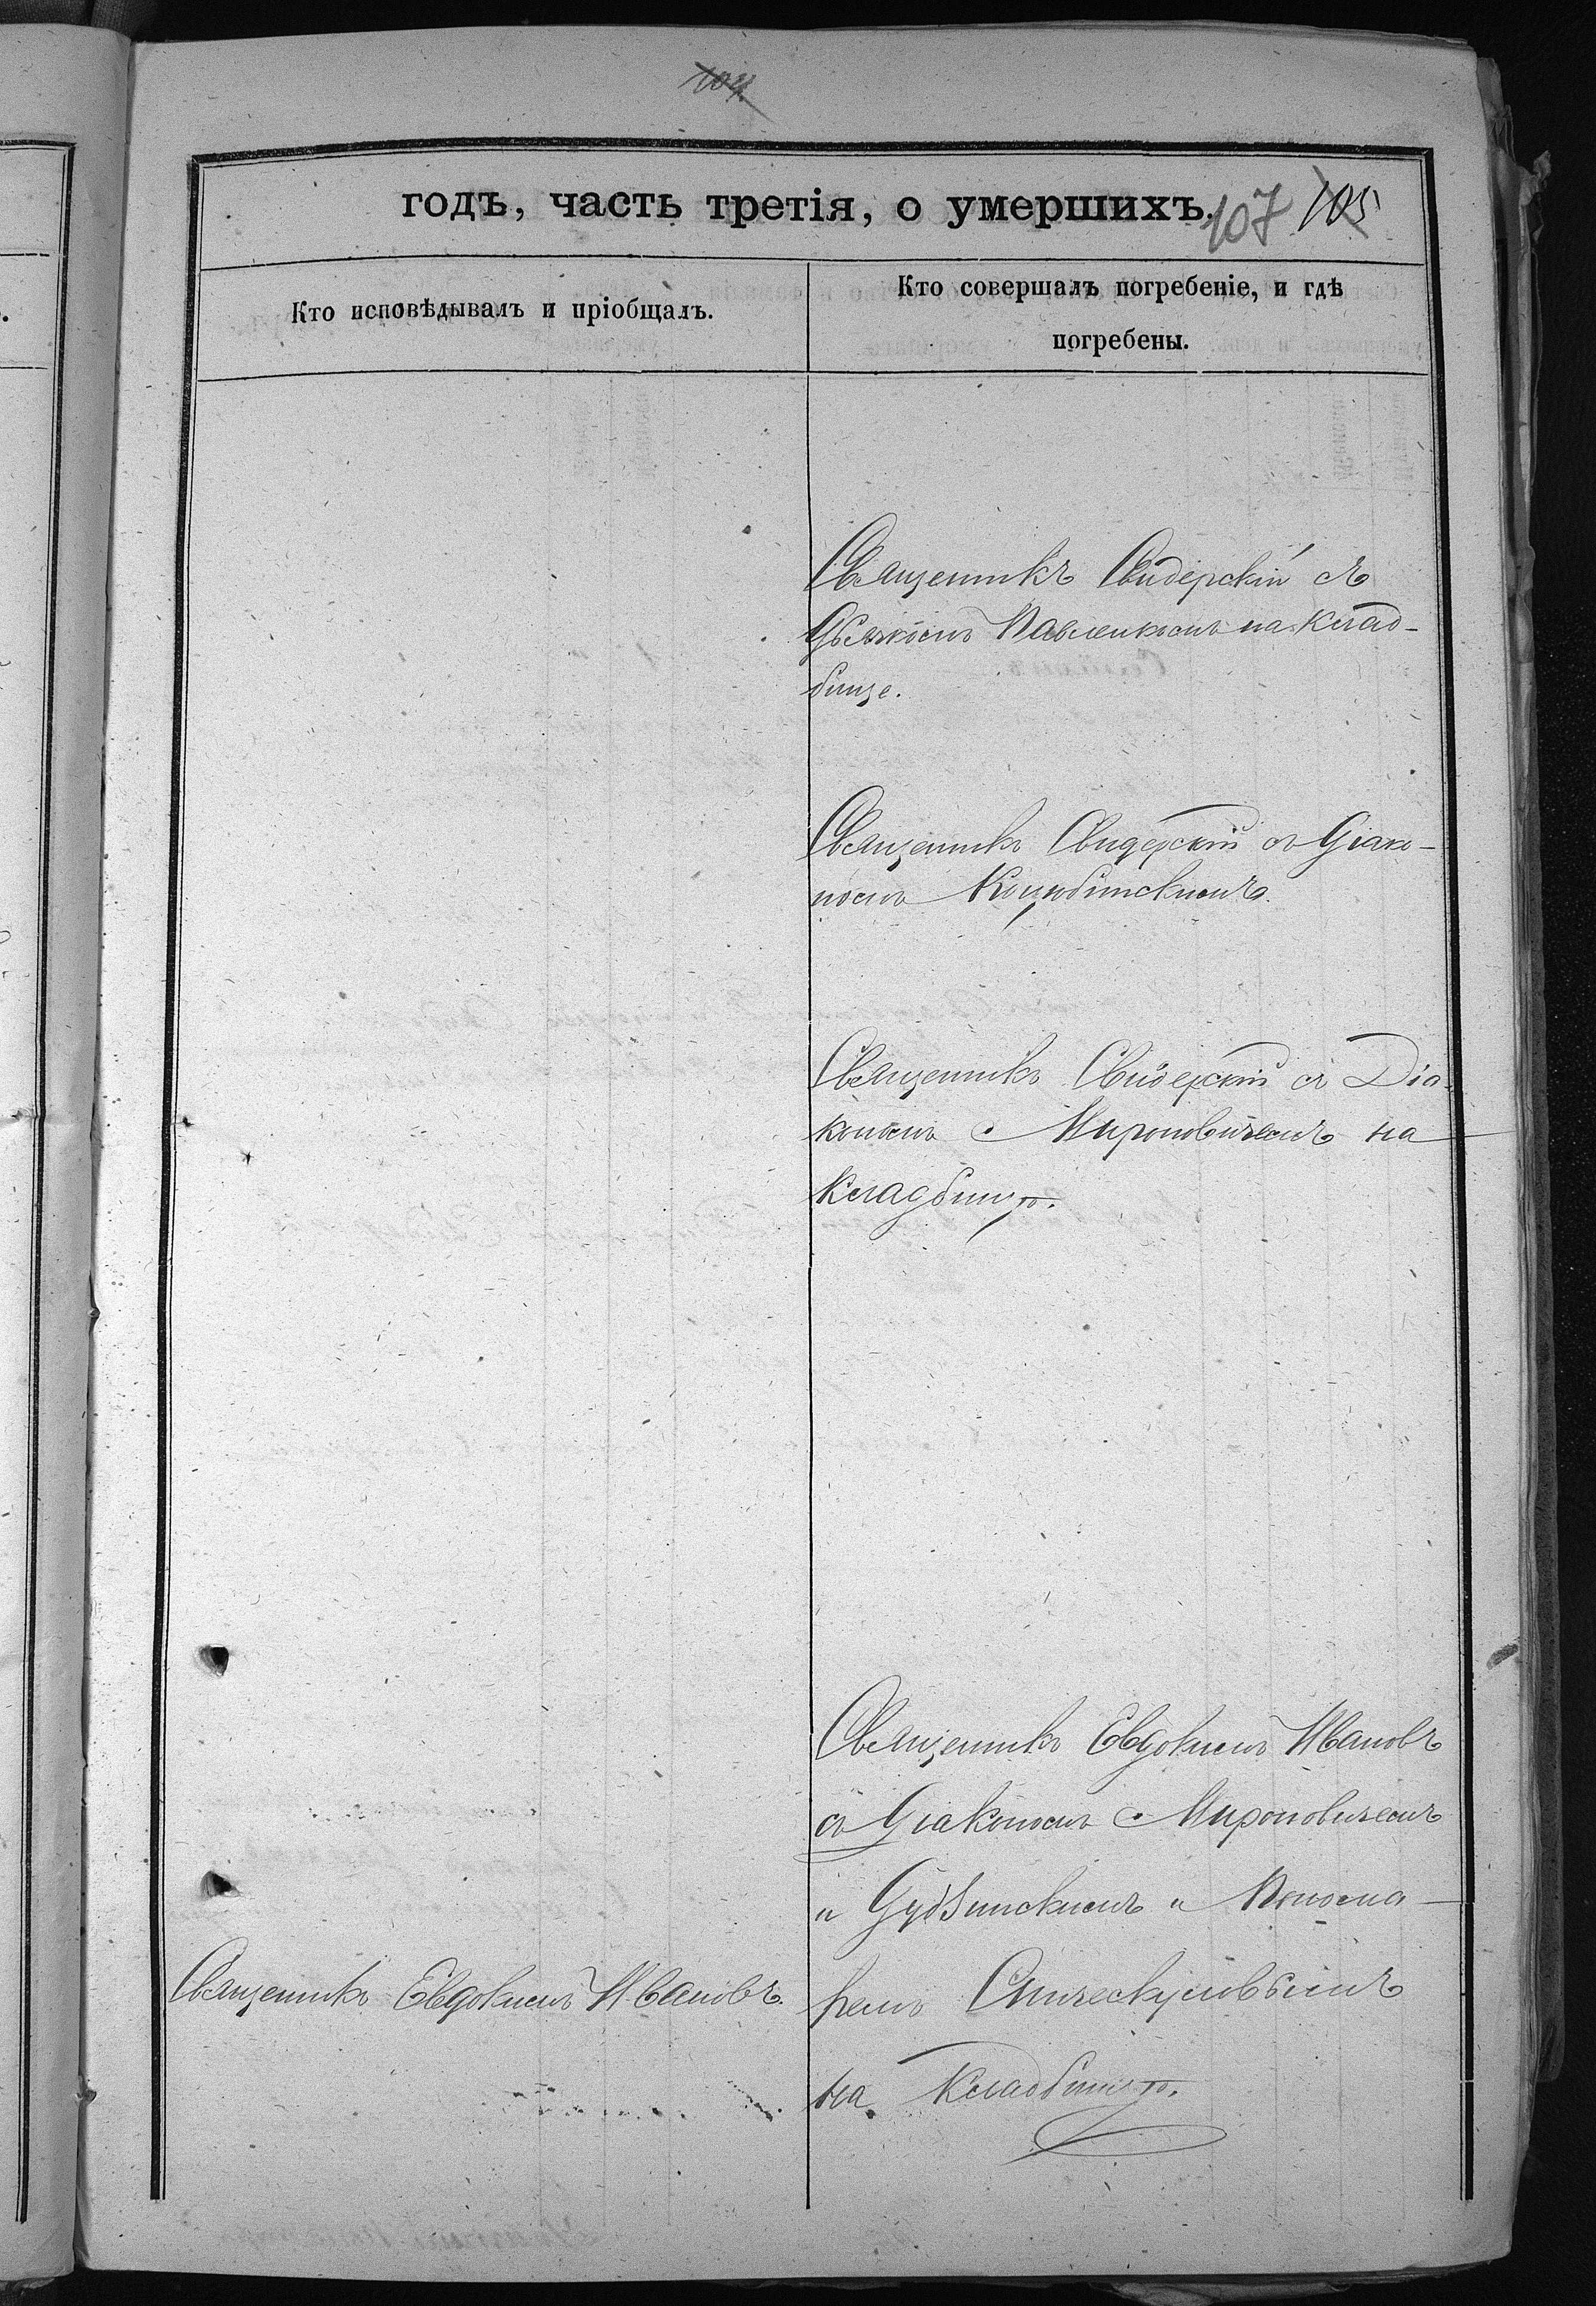 104
годъ, часть третія, о умершихъ.
107 105
Кто исповѣдывалъ и пріобщалъ.
Кто совершалъ погребеніе, и гдѣ
погребены.
Священникъ Свидерскій съ
Дьячкомъ Павленкомъ на клад-
бище.
Священникъ Свидерскій съ Діако-
номъ Коцюбинскимъ.
Священникъ Свидерскій съ Діа-
кономъ Мироновичемъ на
Кладбищѣ.
Священникъ Евдокимъ Ивановъ
съ Діакономъ Мироновичемъ
и Дудзинскимъ и Понома-
Священникъ Евдокимъ Ивановъ.
ремъ
на Кладбищѣ.